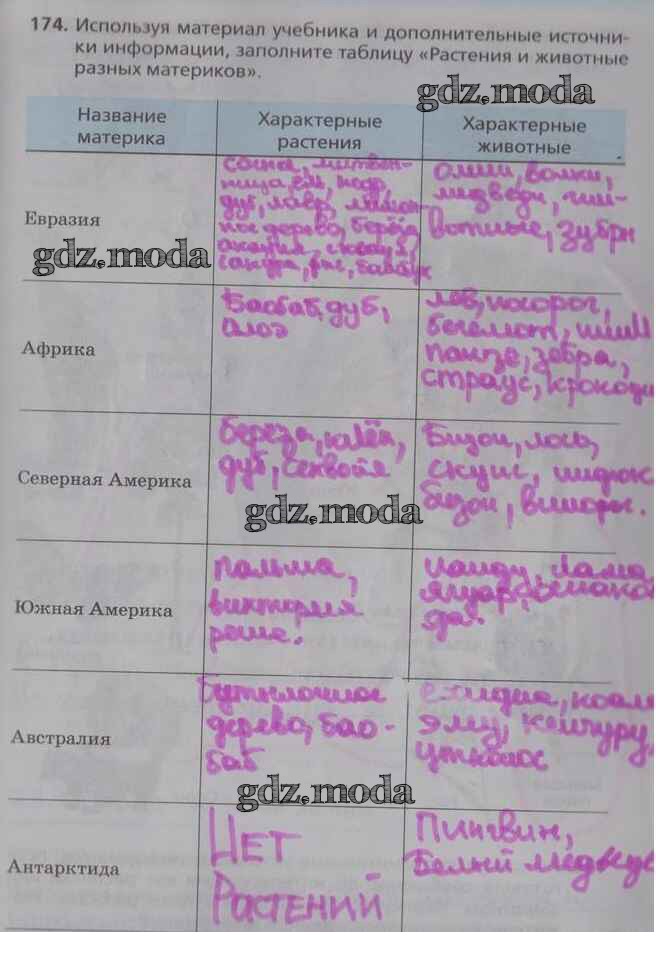 174. Используя материал учебника и дополнительные источни-
ки информации, заполните таблицу «Растения и животные
разных материков».
gdz.moda
Название
материка
Характерные
растения
Характерные
животные
Евразия
gdz.moda
сосна,
ель, кедр,
дуб, лавр,
дерево, берёза,
акация,
сакура, рис, бамбук
олени, волки,
медведи,
зубры
Африка
Баобаб, дуб,
алоэ
лев, носорог,
бегемот, шим
панзе, зебра,
страус, крокоди
Северная Америка
береза, клён,
дуб, секвойя
Бизон, лось,
скунс,
бизон,
gdz.moda
Южная Америка
пальма,
виктория
нанду, лама
ягуар,
да.
Австралия
Бутылочное
дерево, бао-
баб
ехидна, коал
эму, кенгуру,
утконос
gdz.moda
Антарктида
НЕТ
РАСТЕНИЙ
Пингвин,
Белый медведь